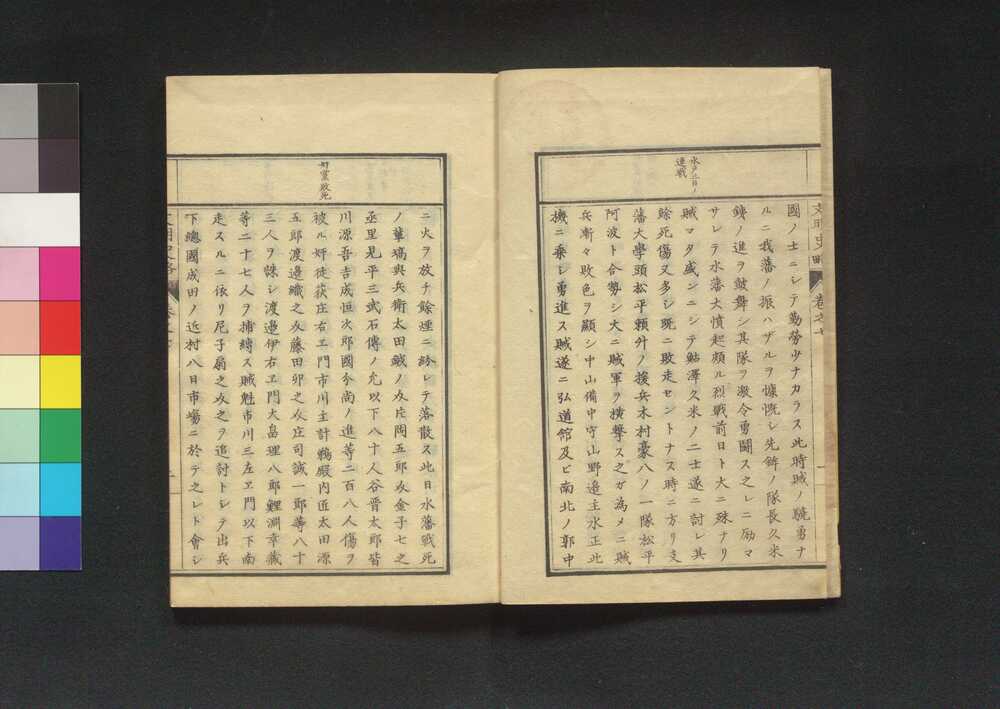 水戸二日ノ
連戦
國ノ士ニシテ勤勞少ナカラス此時賊ノ驍勇ナ
ルニ我藩ノ振ハザルヲ慷慨シ先鋒ノ隊長久米
鋳ノ進ヲ鼓舞シ其隊ヲ激令勇闘ス之レニ励マ
サレテ水藩大憤起頗ル烈戦前日ト大ニ殊ナリ
賊マタ盛ンニシテ鮎澤久米ノ二士遂ニ討レ其
餘死傷又多シ既ニ敗走セントナス時ニ方リ支
藩大學頭松平頼升ノ援兵木村豪八ノ一隊松平
阿波ト合勢シ大ニ賊軍ヲ横撃ス之ガ為メニ賊
兵漸々敗色ヲ顯シ中山備中守山野邉主水正此
機ニ乗シ勇進ス賊遂ニ弘道館及ビ南北ノ郭中
文明史略 卷之七
奸黨敗死
ニ火ヲ放チ餘煙ニ紛レテ落散ス此日水藩戦死
ノ輩塙與兵衛太田鉞ノ亟片岡五郎亟金子七之
丞里見平三武石傳ノ允以下八十人谷晋太郎皆
川源吾吉成恒次郎國分尚ノ進等二百八人傷ヲ
被ル奸徒荻庄右エ門市川主計鵜殿内匠太田源
五郎渡邊織之亟藤田卯之亟庄司誠一郎等八十
三人ヲ誅シ渡邉伊右エ門大畠理八郎鯉淵幸藏
等二十七人ヲ捕縛ス賊魁市川三左エ門以下南
走スルニ依リ尼子扇之亟之ヲ追討トシテ出兵
下總國成田ノ近村八日市塲ニ於テ之レト會シ